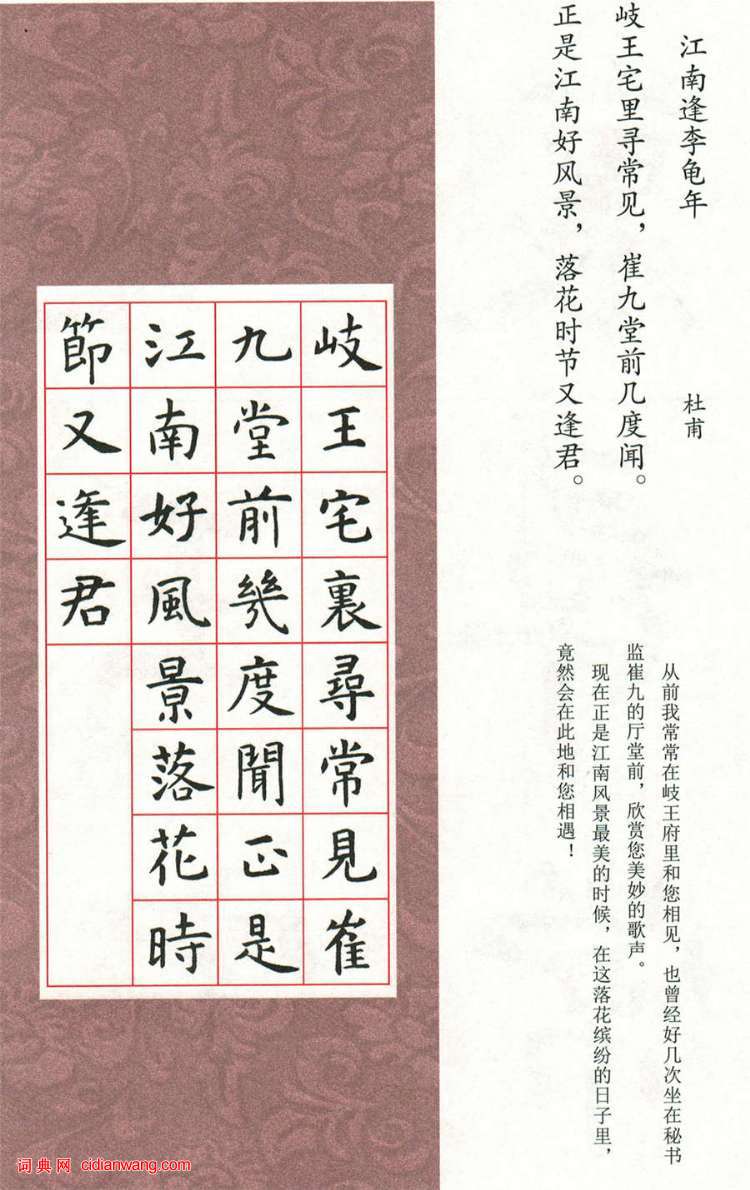 江南逢李龟年
杜甫
岐王宅里寻常见，崔九堂前几度闻。
正是江南好风景，落花时节又逢君。
从前我常常在岐王府里和您相见，也曾经好几次坐在秘书
监崔九的厅堂前，欣赏您美妙的歌声。
现在正是江南风景最美的时候，在这落花缤纷的日子里，
竟然会在此地和您相遇！
岐王宅裏尋常見崔
九堂前幾度聞正是
江南好風景落花時
節又逢君
词典网 cidianwang.com